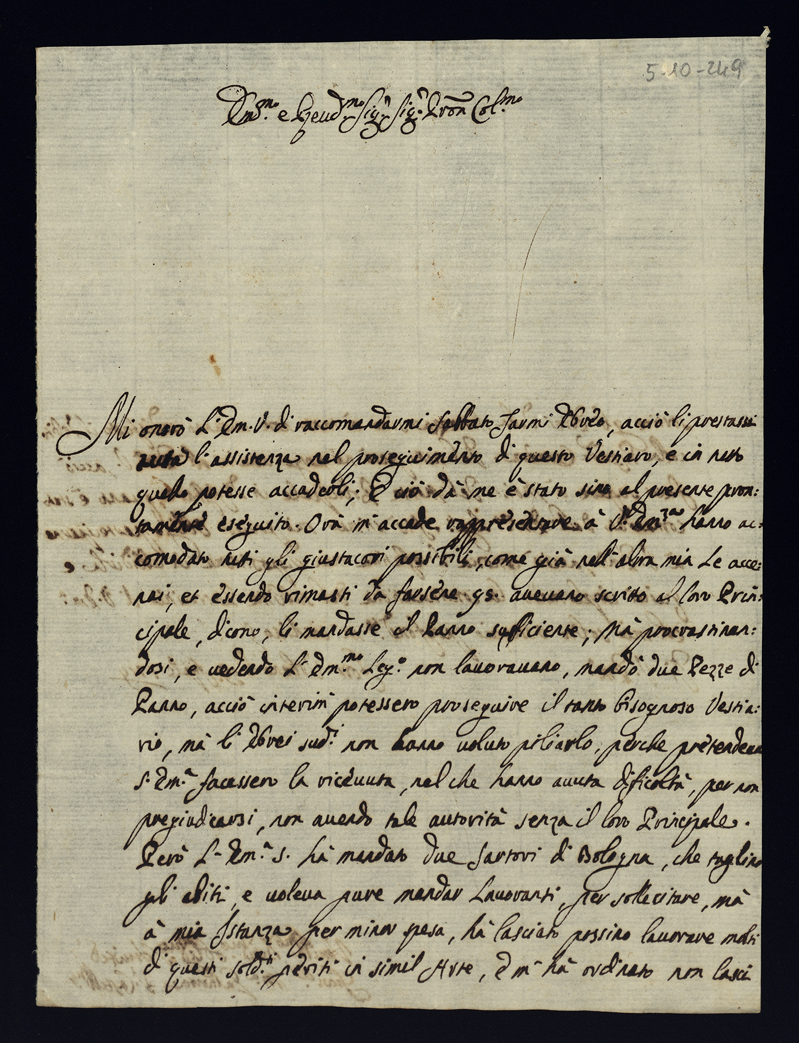 5-10-249
Em.mo e Reud.mo Sig.r Sig.r Pron Col.mo
Mi onorò L'Em. V. di raccomandarmi Sabbato Jarmi Ebreo, acciò li prestassi
l'assistenza nel proseguimento di questo Vestiaro, e in tutto
quello potesse accaderli; E ciò dà me è stato sino al presente pron:
tamente eseguito. Orà m'accade rappresentare à V. Em.za hanno ac:
comodato tutti gli giustacori possibili, come già nell'altra mia Le acce:
nai, et essendo rimasti da farsene 98. aueuano scritto al loro Prin:
cipale, dicono, li mandasse il Panno sufficiente; Mà procrastinan:
dosi, e uedendo L'Em.mo Leg.o non lauorauano, mandò due Pezze di
Panno, acciò interim potessero proseguire il tanto bisognoso Vestia:
rio, mà li Ebrei sud.i non hanno uoluto piliarlo, perche pretendeua
S. Em.a facessero la riceuuta, nel che hanno auuta dificoltà, per non
pregiudicarsi, non auendo tale autorità senza il loro Principale.
Però L'Em.a S. hà mandato due Sartori di Bologna, che taglino
gli abiti, e uoleua pure mandar Lauoranti, per sollecitare, mà
à mia Istanza per minor spesa, hà lasciato possino lauorare molti
di questi sold.ti periti in simil Arte, E m'hà ordinato non lasci